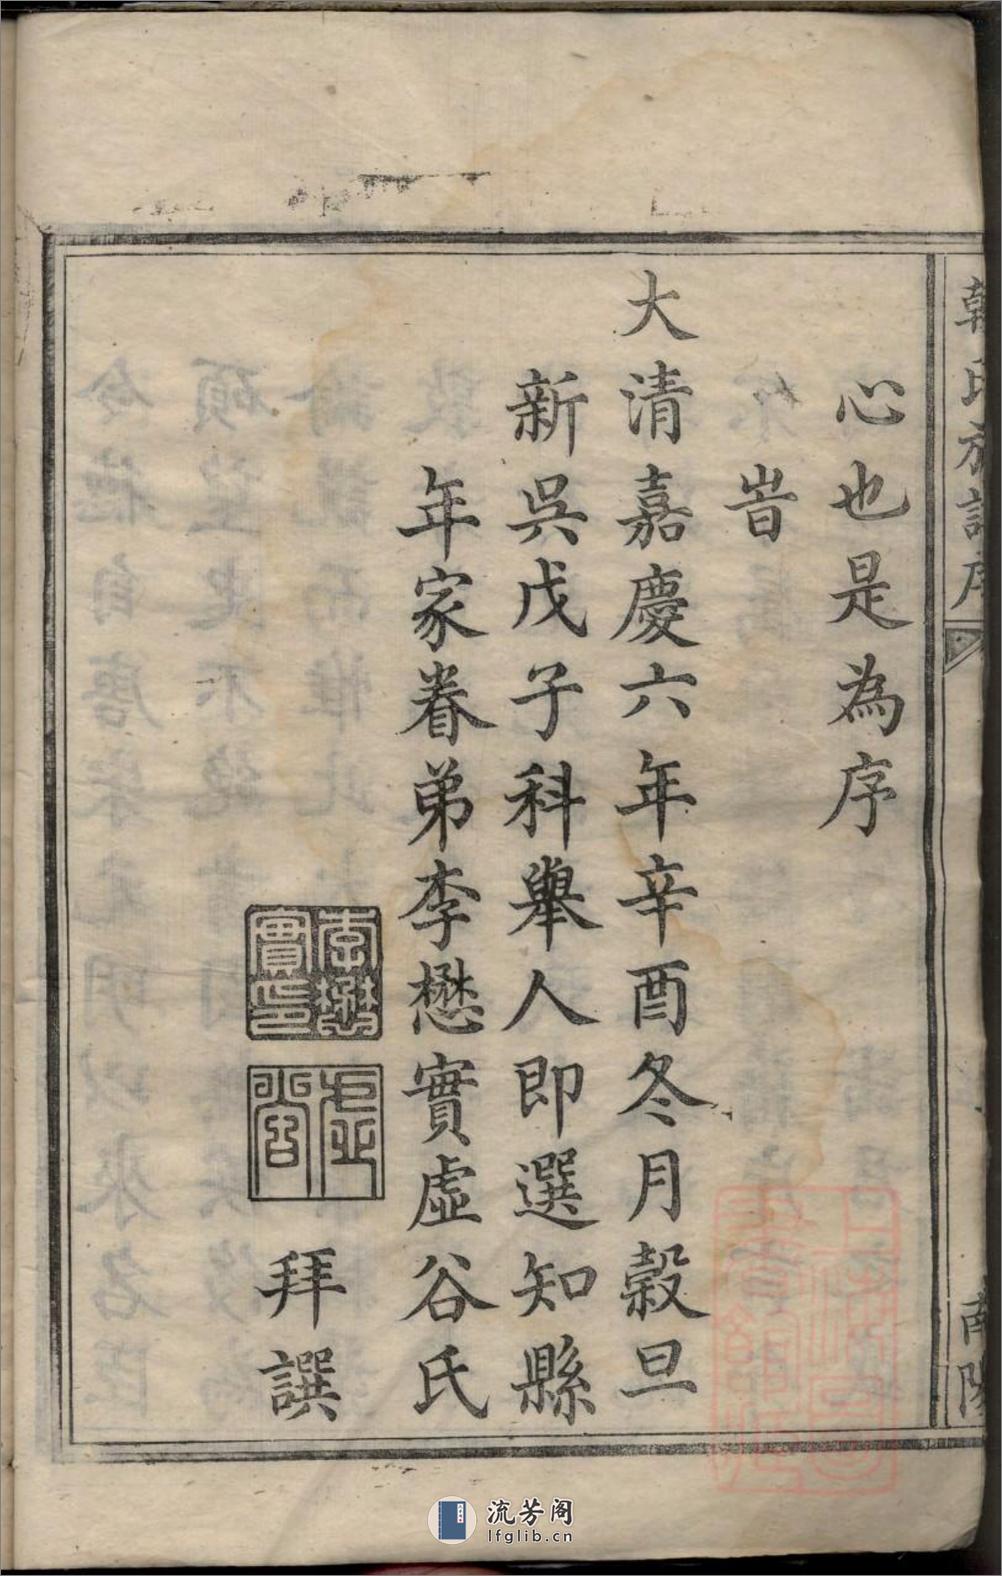 韓氏族譜序
南陽
心也是為序
旹
大清嘉慶六年辛酉冬月穀旦
新吳戊子科舉人即選知縣
年家眷弟李懋實虛谷氏
李懋
實印
虛
谷
拜譔
流芳阁
lfglib.cn